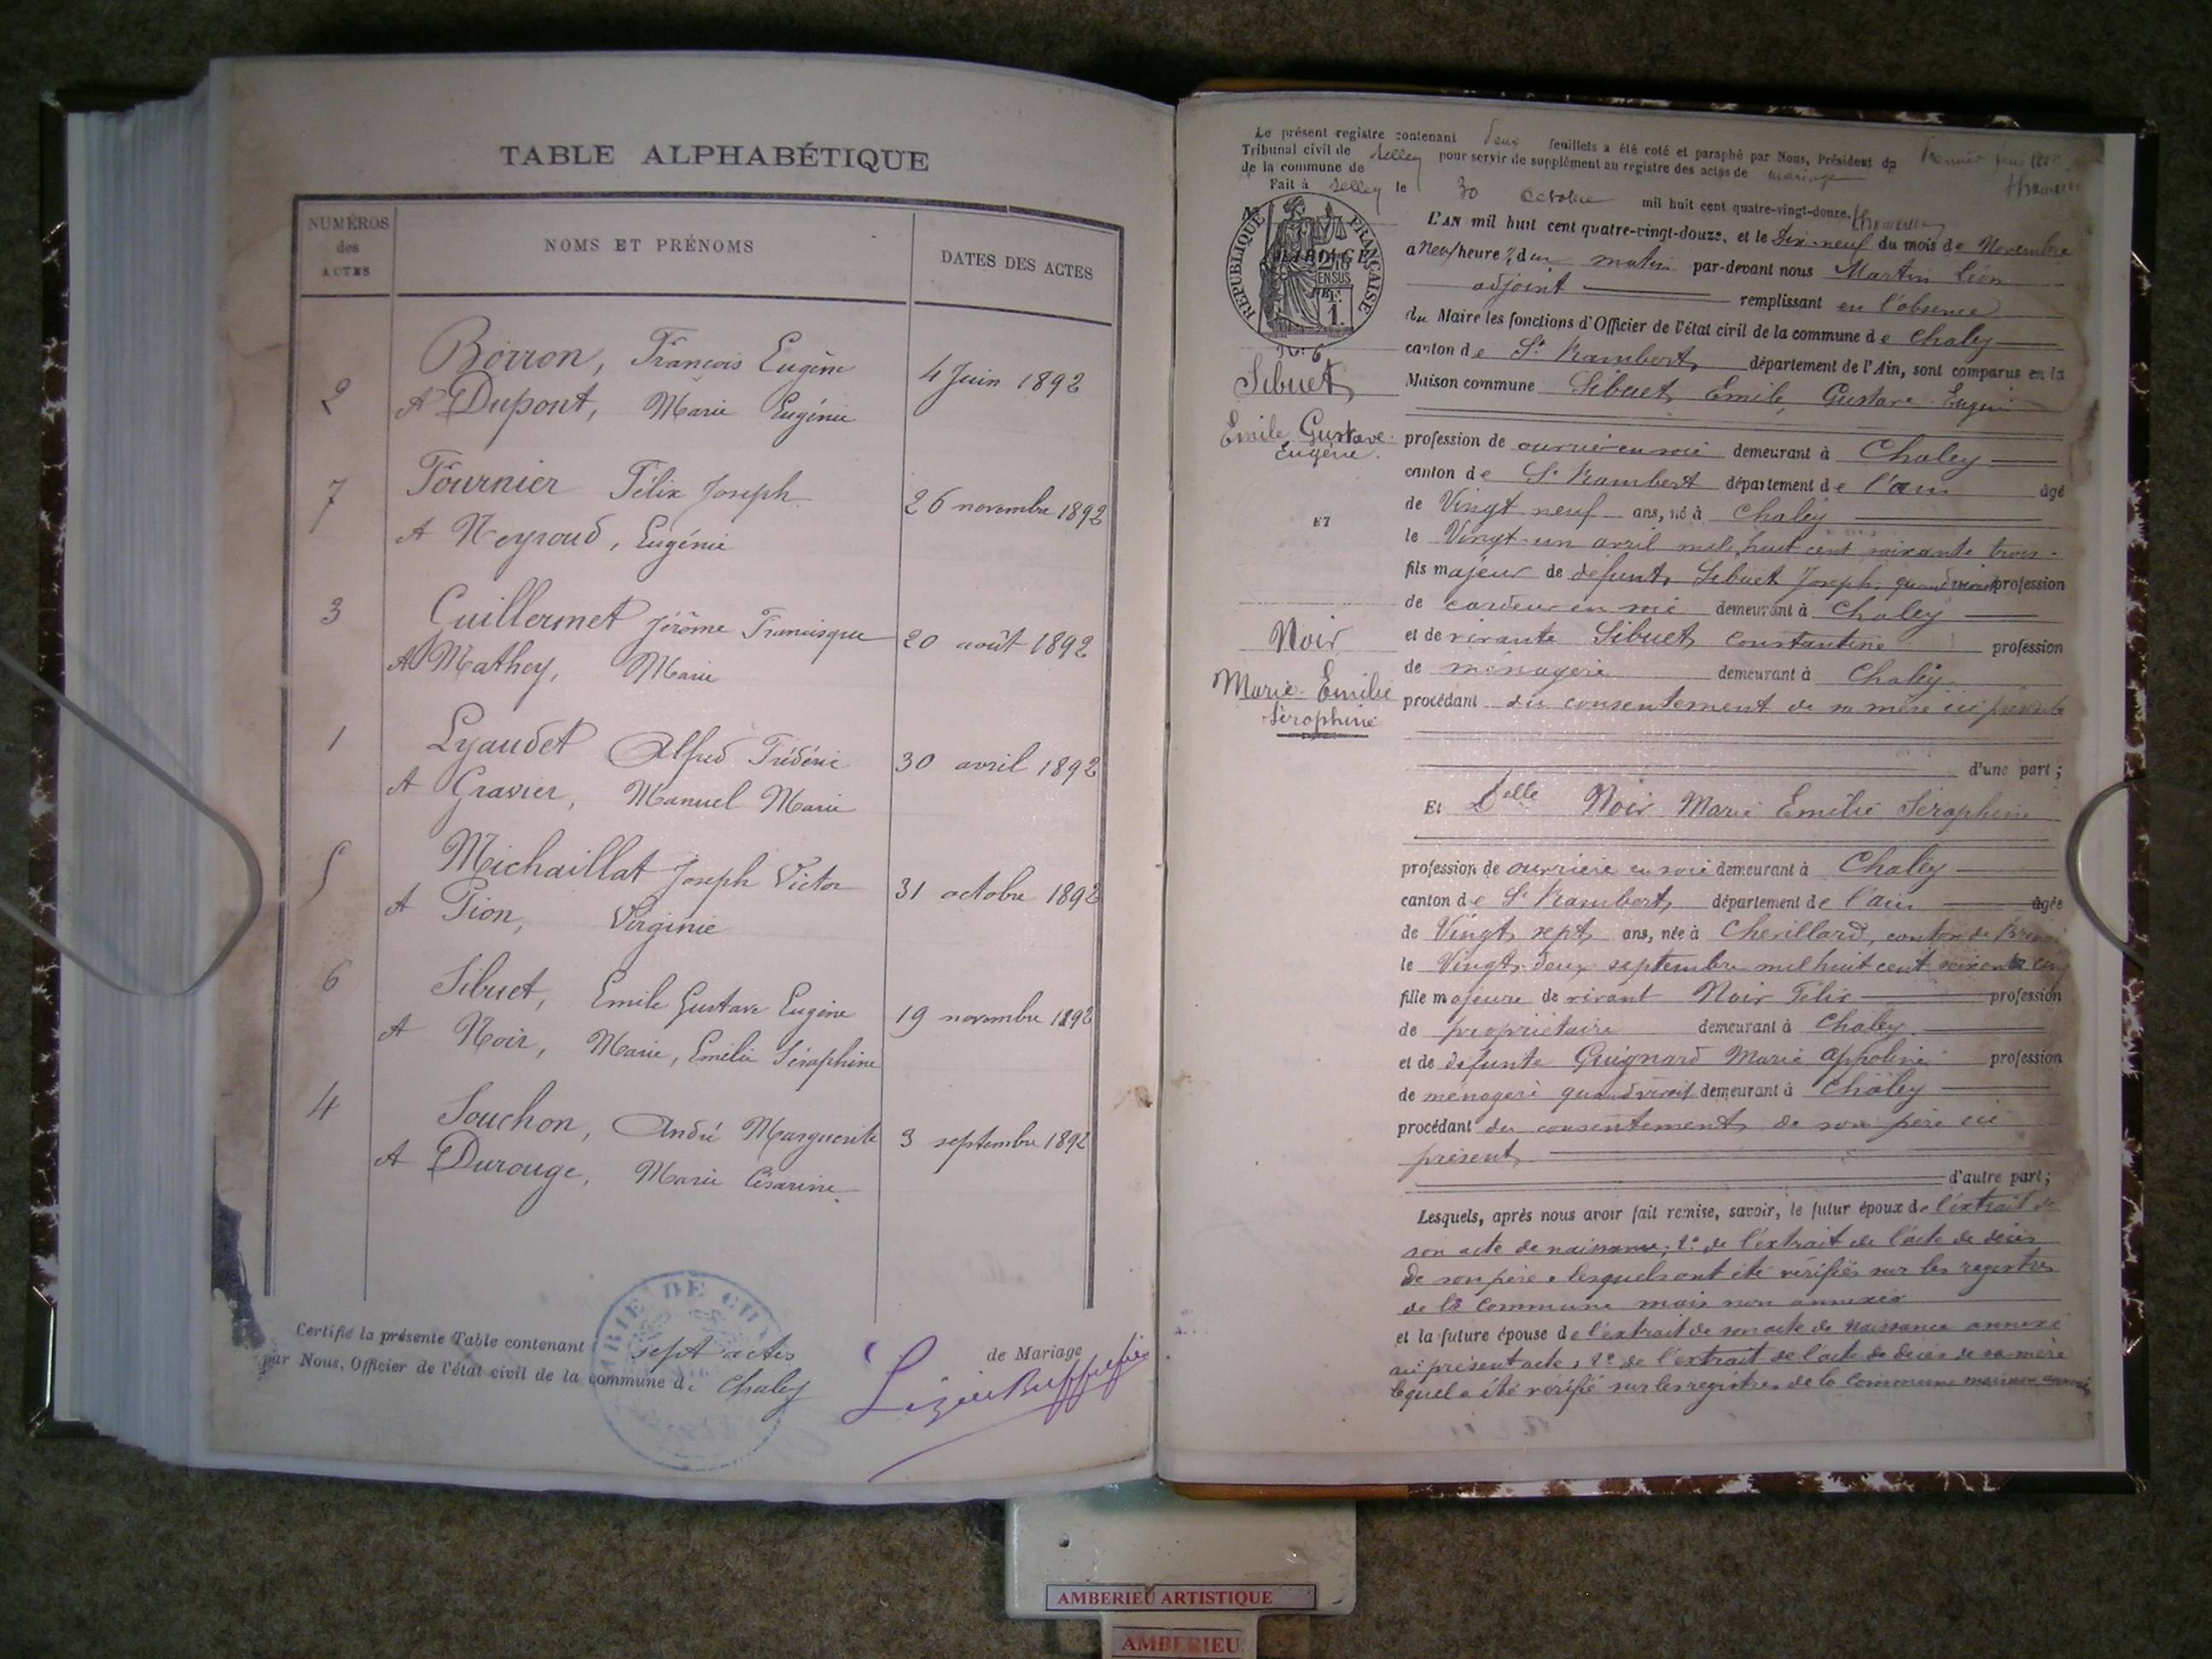 TABLE ALPHABÉTIQUE
NUMÉROS
des
ACTES
NOMS ET PRÉNOMS
DATES DES ACTES
2
Borron, François Eugène
A Dupont, Marie Eugénie
4 Juin 1892
7
Fournier Félix Joseph
A Neyroud, Eugénie
26 novembre 1892
3
Guillermet Jérôme Francisque
A Mathey, Marie
20 août 1892
1
Lyaudet Alfred Frédéric
A Gravier, Manuel Marie
30 avril 1892
5
Michaillat Joseph Victor
A Pion, Virginie
31 octobre 1892
6
Sibuet, Emile Gustave Eugène
A Noir, Marie, Emélie Séraphine
19 novembre 1892
4
Souchon, André Marguerite
A Durouge, Marie Césarine
3 septembre 1892
Certifié la présente Table contenant sept actes de Mariage
par Nous, Officier de l'état civil de la commune de Chaley
MAIRIE DE CHA
Le présent registre contenant deux feuillets a été coté et paraphé par Nous, Président du
Tribunal civil de Belley pour servir de supplément au registre des actes de mariage
de la commune de
Fait à Belley le 30 octobre mil huit cent quatre-vingt-douze.
RÉPUBLIQUE FRANÇAISE
L'AN mil huit cent quatre-vingt-douze, et le Dix-neuf du mois de Novembre
a Neuf heures du matin par-devant nous Martin Léon
adjoint remplissant en l'absence
du Maire les fonctions d'Officier de l'état civil de la commune de Chaley
canton de St Rambert, département de l'Ain, sont comparus en la
Maison commune Sibuet, Emile, Gustave Eugène
No 6
Sibuet,
Emile Gustave
Eugène.
ET
Noir
Marie-Emilie
Séraphine
profession de ouvrier en soie demeurant à Chaley
canton de St Rambert département de l'ain âgé
de Vingt neuf ans, né à Chaley
le Vingt-un avril mil huit cent soixante trois
fils majeur de défunt, Sibuet Joseph, quand vivait profession
de cardeur en soie demeurant à Chaley
et de vivante Sibuet, Constantine profession
de ménagère demeurant à Chaley
procédant du consentement de sa mère ici présente
d'une part;
Et Delle Noir Marie Emélie Séraphine
profession de ouvrière en soie demeurant à Chaley
canton de St Rambert, département de l'ain âgée
de Vingt, sept, ans, née à Chevillard, canton de
le Vingt-deux septembre mil huit cent soixante cinq
fille majeure de vivant Noir Félix profession
de propriétaire demeurant à Chaley
et de défunte Guignard Marie Appoline profession
de ménagère quand vivait demeurant à Chaley
procédant du consentement, de son père ici
présent,
d'autre part;
Lesquels, après nous avoir fait remise, savoir, le futur époux de l'extrait de
son acte de naissance; 2° de l'extrait de l'acte de décès
de son père, lesquels ont été vérifiés sur les registres
de la Commune mais non annexés
et la future épouse de l'extrait de son acte de naissance annexé
au présent acte, 2° de l'extrait de l'acte de décès de sa mère
lequel a été vérifié sur les registres de la Commune mais non annexé
AMBERIEU ARTISTIQUE
AMBERIEU